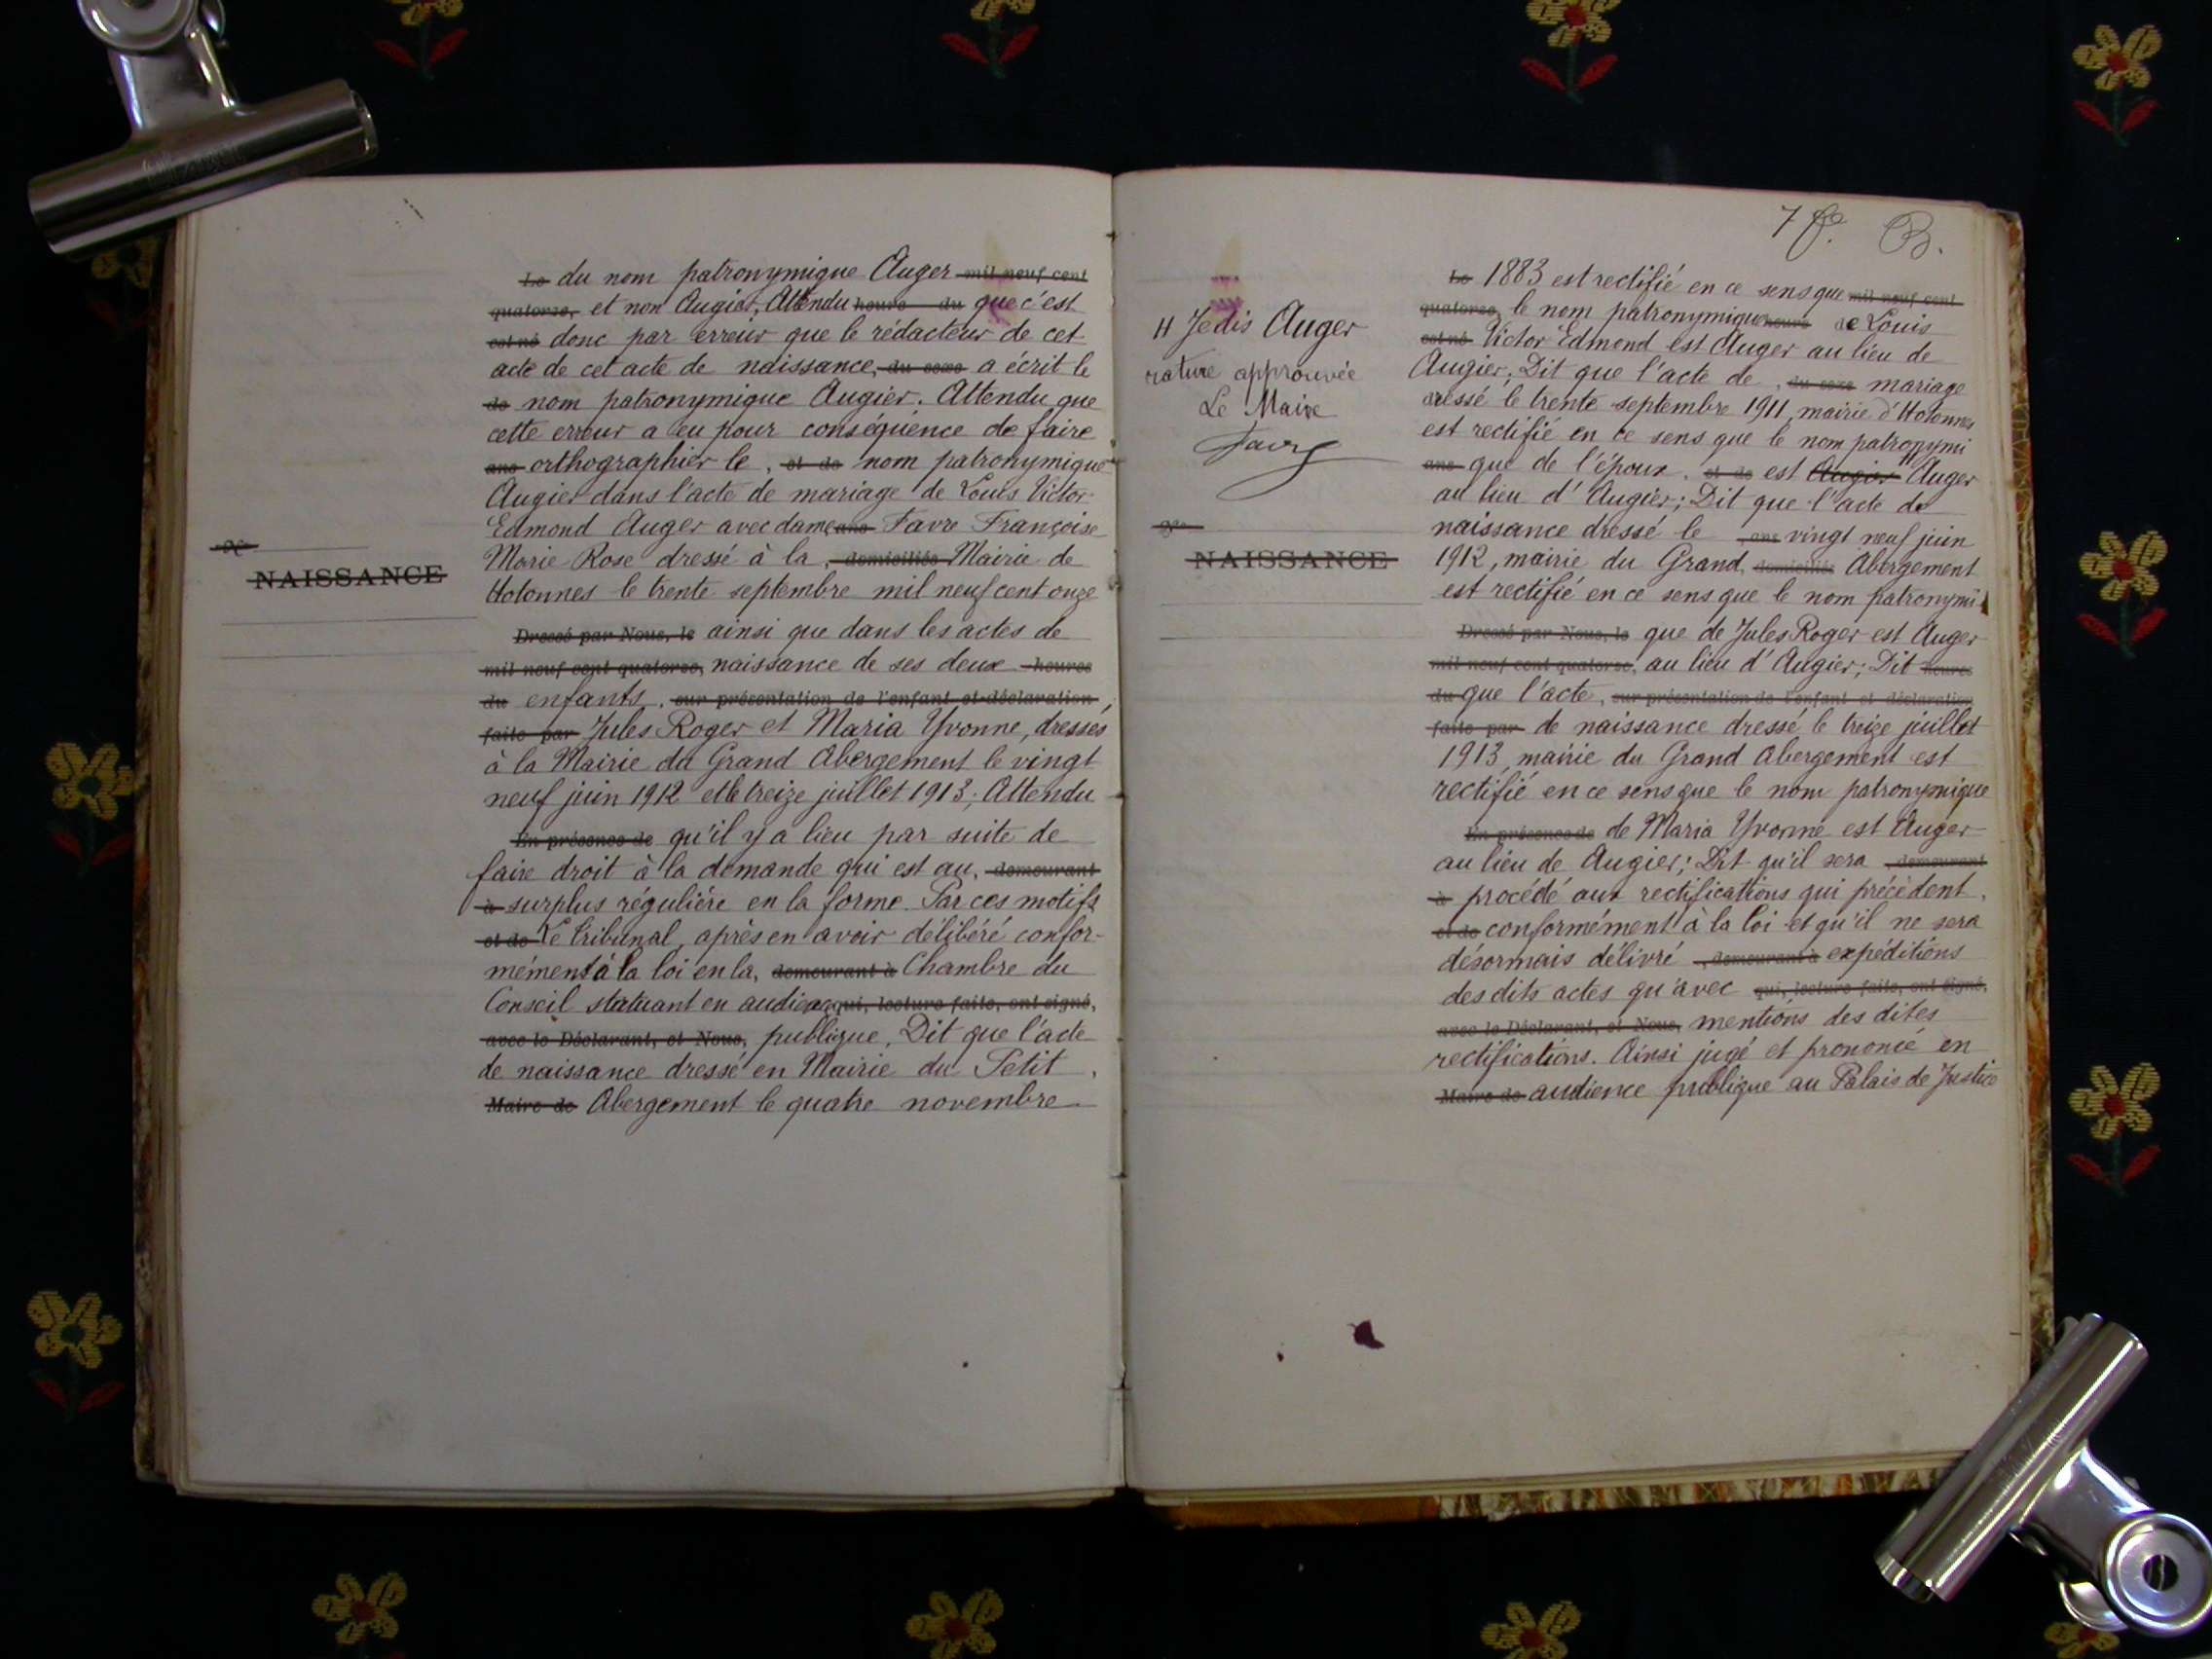 Le du nom patronymique Auger mil neuf cent
quatorze, et non Augier, Attendu heure du que c'est
est né donc par erreur que le rédacteur de cet
acte de cet acte de naissance, du sexe a écrit le
de nom patronymique Augier. Attendu que
cette erreur a eu pour conséquence de faire
ans orthographier le, et de nom patronymique
Augier dans l'acte de mariage de Louis Victor
Edmond Auger avec dame ans Favre Françoise
Marie Rose dressé à la, domiciliés Mairie de
Hotonnes le trente septembre mil neuf cent onze
NAISSANCE
Dressé par Nous, le ainsi que dans les actes de
mil neuf cent quatorze, naissance de ses deux heures
du enfants, sur présentation de l'enfant et déclaration
faite par Jules Roger et Maria Yvonne, dressés
à la Mairie du Grand Abergement le vingt
neuf juin 1912 et le treize juillet 1913; Attendu
En présence de qu'il y a lieu par suite de
faire droit à la demande qui est au, demeurant
à surplus régulière en la forme. Par ces motifs
et de Le tribunal, après en avoir délibéré confor-
mément à la loi en la, demeurant à Chambre du
Conseil statuant en audience qui, lecture faite, ont signé,
avec le Déclarant, et Nous, publique, Dit que l'acte
de naissance dressé en Mairie du Petit
Maire de Abergement le quatre novembre
7 f. B.
H Je dis Auger
rature approuvée
Le Maire
Favre
NAISSANCE
Le 1883 est rectifié en ce sens que mil neuf cent
quatorze, le nom patronymique heure de Louis
est né Victor Edmond est Auger au lieu de
Augier; Dit que l'acte de, du sexe mariage
dressé le trente septembre 1911, mairie d'Hotonnes
est rectifié en ce sens que le nom patronymi
ans que de l'époux, et de est Augier Auger
au lieu d'Augier; Dit que l'acte de
naissance dressé le ans vingt neuf juin
1912, mairie du Grand, domiciliés Abergement
est rectifié en ce sens que le nom patronymi-
Dressé par Nous, le que de Jules Roger est Auger
mil neuf cent quatorze, au lieu d'Augier; Dit heures
du que l'acte, sur présentation de l'enfant et déclaration
faite par de naissance dressé le treize juillet
1913, mairie du Grand Abergement est
rectifié en ce sens que le nom patronymique
En présence de de Maria Yvonne est Auger
au lieu de Augier; Dit qu'il sera, demeurant
à procédé aux rectifications qui précèdent
et de conformément à la loi et qu'il ne sera
désormais délivré, demeurant à expéditions
des dits actes qu'avec qui, lecture faite, ont signé,
avec le Déclarant, et Nous, mentions des dites
rectifications. Ainsi jugé et prononcé en
Maire de audience publique au Palais de Justice